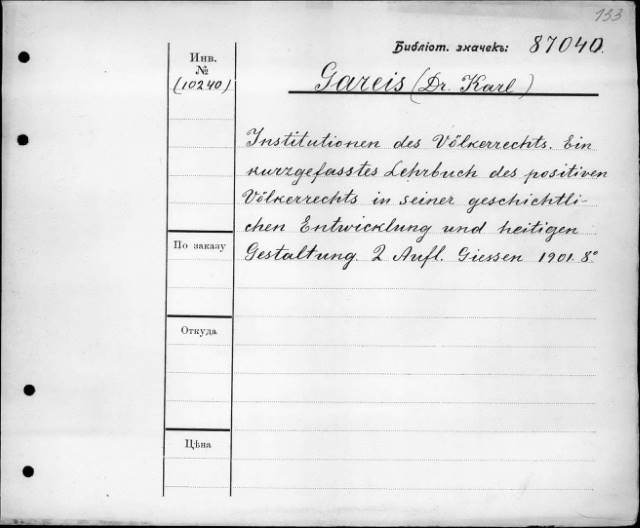 133
Библіот. значекъ: 87040.
Инв.
№
(10240)
Gareis (Dr. Karl)
Institutionen des Völkerrechts. Ein
kurzgefasstes Lehrbuch des positiven
Völkerrechts in seiner geschichtli-
chen Entwicklung und heitigen
Gestaltung. 2 Aufl. Giessen 1901. 8°
По заказу
Откуда
Цѣна